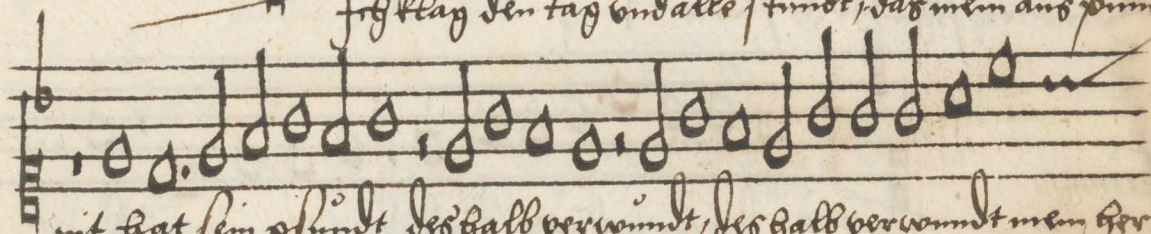 Ich klag den tag vnd alle stundt, das mein aug
nit hat sein gsundt deshalb verwundt, deshalb verwundt mein her